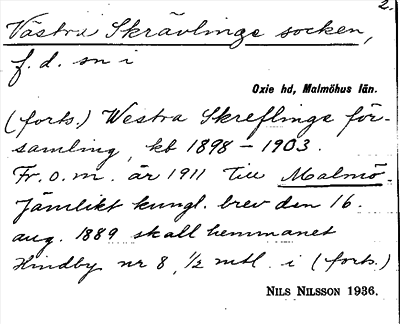 2.
Västra Skrävlinge socken,
f. d. sn i
Oxie hd, Malmöhus län.
(forts.) Westra Skreflinge för-
samling, kb 1898 - 1903.
Fr. o. m. år 1911 till Malmö.
Jämlikt kungl. brev den 16
aug. 1889 skall hemmanet
Hindby nr 8, ½ mtl. i (forts.)
NILS NILSSON 1936.